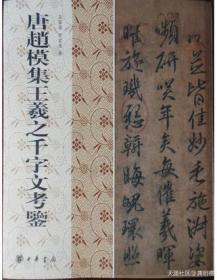 唐趙模集王羲之千字文考鑒
中華書局
並皆佳妙毛施淑姿
嚬研咲年矢每催羲暉
曜旋璣懸斡晦魄環照